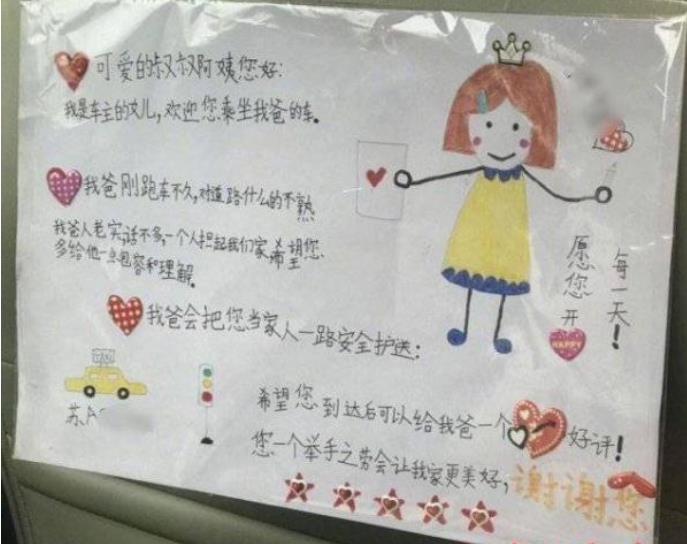 可爱的叔叔阿姨您好:
我是车主的女儿,欢迎您乘坐我爸的车。
我爸刚跑车不久,对道路什么的不熟
我爸人老实,话不多,一个人担起我们家,希望您
多给他一点包容和理解。
我爸会把您当家人一路安全护送:
希望您到达后可以给我爸一个好评!
您一个举手之劳会让我家更美好,谢谢您
愿您开
HAPPY
每一天!
TAXI
苏A